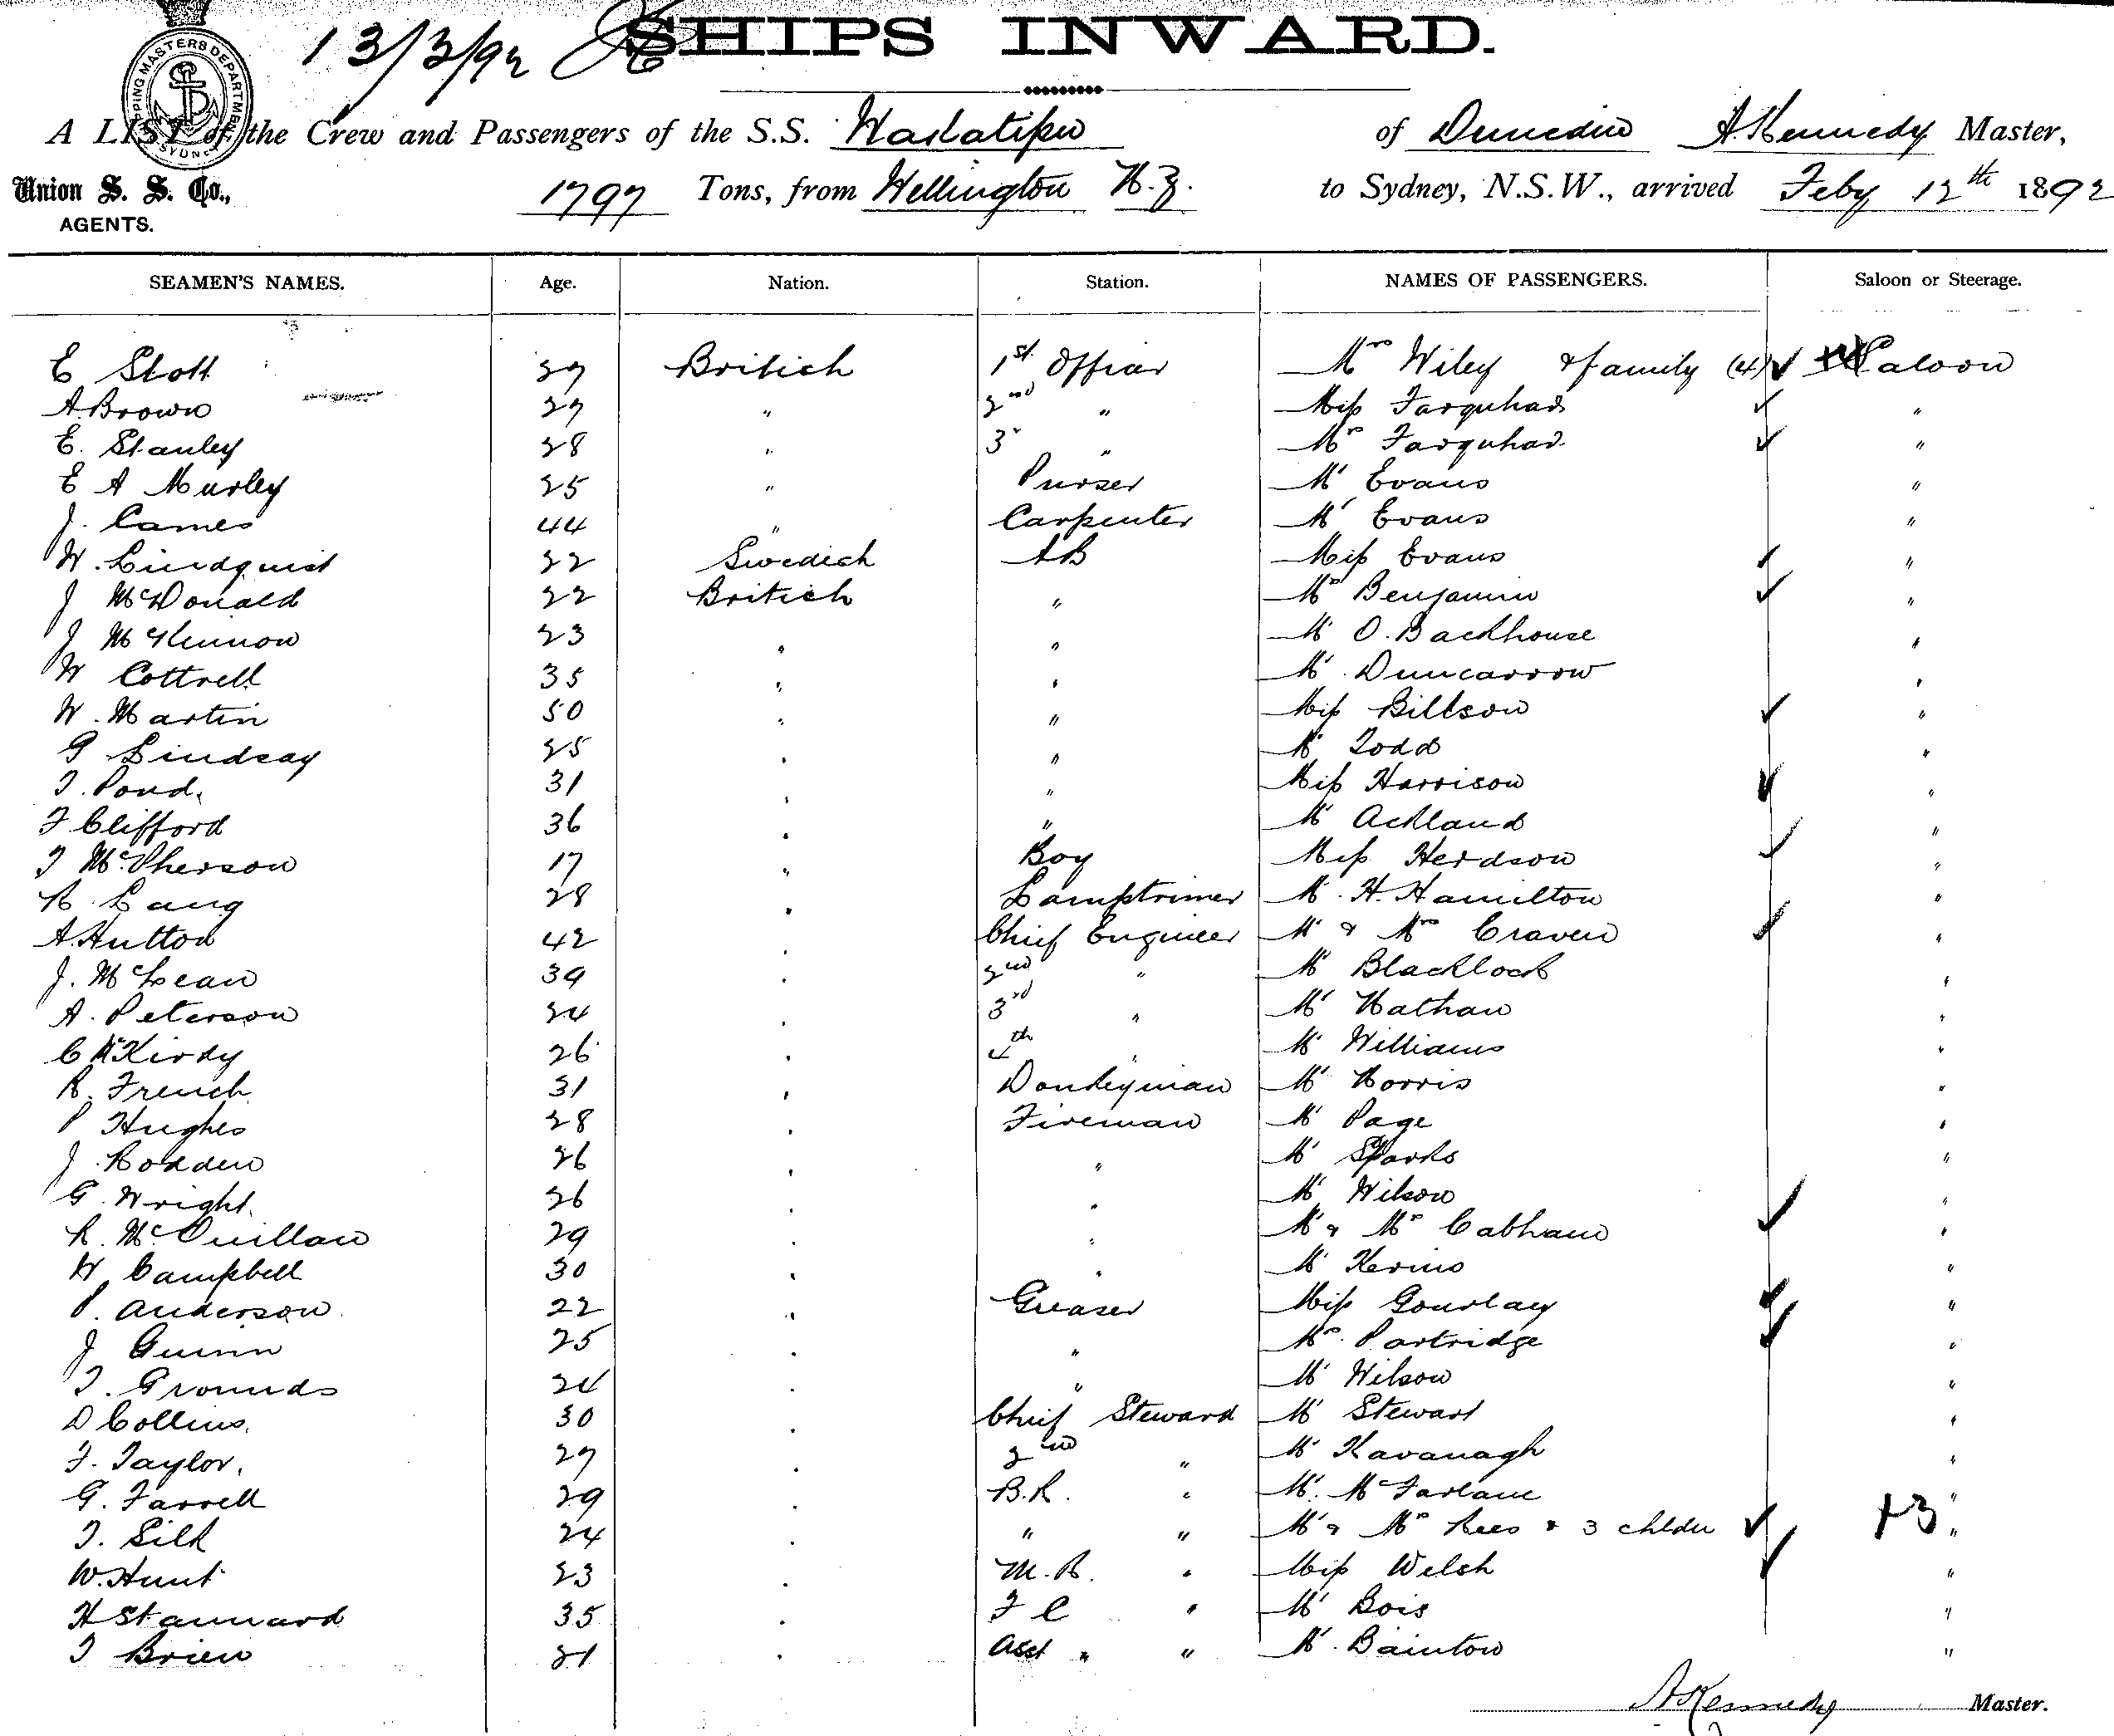 13/3/92 SHIPS INWARD.
SHIPPING MASTERS DEPARTMENT SYDNEY
A LIST of the Crew and Passengers of the S.S. Wakatipu of Dunedin A Kennedy Master,
Union S. S. Co., AGENTS. 1797 Tons, from Wellington N.Z. to Sydney, N.S.W., arrived Feby 12th 1892
SEAMEN'S NAMES. Age. Nation. Station. NAMES OF PASSENGERS. Saloon or Steerage.
E Stott 37 British 1st Officer Mrs Wiley & family (4) ✓ Saloon
A. Brown 27 " 2nd " Miss Farquhar ✓ "
E. Stanley 28 " 3r " Mrs Farquhar ✓ "
E A Murley 25 " Purser Mr Evans "
J. Cames 44 " Carpenter Mr Evans "
W. Lindquist 22 Swedish AB Miss Evans ✓ "
J McDonald 22 British " Mrs Benjamin ✓ "
J McKinnon 23 " " Mr O. Backhouse "
W Cottrell 35 " " Mr Duncarrow "
W. Martin 50 " " Miss Billson ✓ "
G Lindsay 25 " " Mr Todd "
T. Pond. 31 " " Miss Harrison ✓ "
F Clifford 36 " " Mr Ackland "
T McPherson 17 " Boy Miss Herdson ✓ "
R. Lang 28 " Lamptrimer Mr. H. Hamilton "
A. Hutton 42 " Chief Engineer Mr & Mrs Craven ✓ "
J. McLean 39 " 2nd " Mr Blacklock "
A. Peterson 24 " 3rd " Mr Nathan "
C McKirdy 26 " 4th " Mr Williams "
R. French 31 " Donkeyman Mr Norris "
P Hughes 28 " Fireman Mr Page "
J. Rodden 26 " " Mr Sparks "
G. Wright. 26 " " Mr Wilson "
R. McQuillan 29 " " Mr & Mrs Cabham ✓ "
W Campbell 30 " " Mr Kerins "
P. Anderson. 22 " Greaser Miss Gourlay ✓ "
J Guinn 25 " " Mrs. Partridge ✓ "
T. Grounds 24 " " Mr Wilson "
D Collins. 30 " Chief Steward Mr Stewart "
F. Taylor. 27 " 2nd " Mr Kavanagh "
G. Farrell 29 " B.R. " Mr. McFarlane "
T. Silk 24 " " " Mr & Mrs Rees & 3 chldn ✓ +3 "
W. Hunt 23 " M.R. " Miss Welsh ✓ "
H Stannard 35 " F C " Mr Bois "
T Brien 21 " Asst " " Mr. Bainton "
A Kennedy Master.